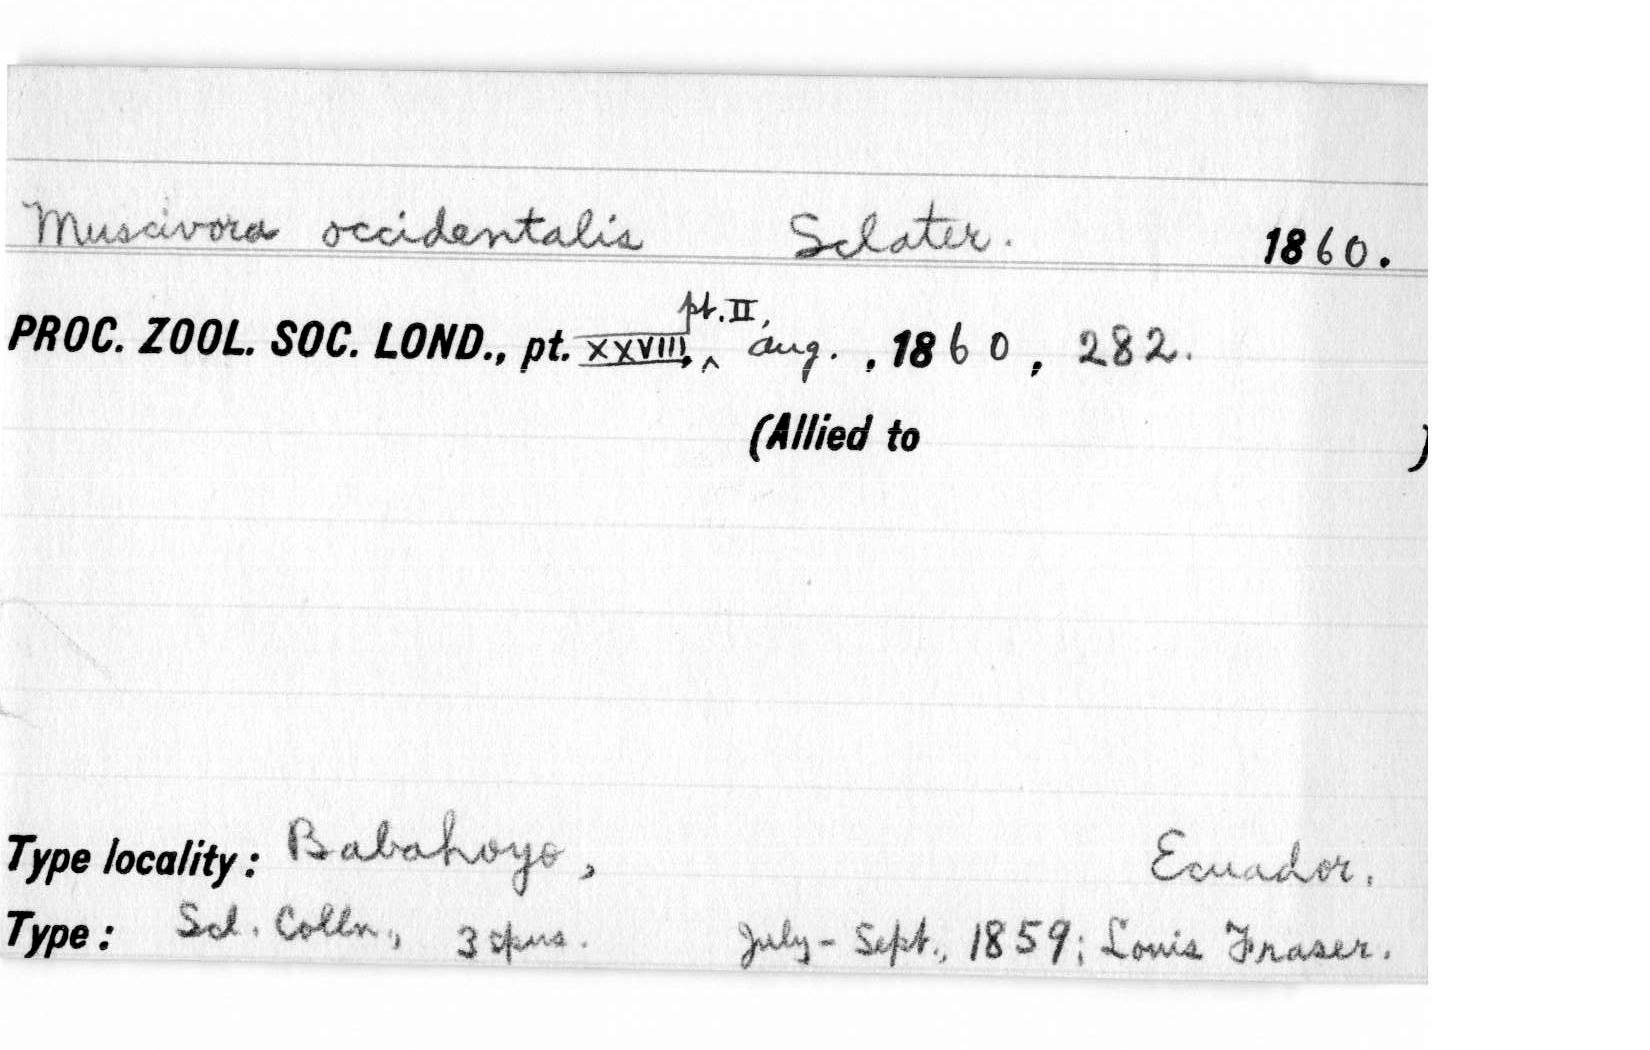 Muscivora occidentalis Sclater. 1860.
PROC. ZOOL. SOC. LOND., pt. XXVIII, ^ pt. II, Aug. , 1860 , 282.
(Allied to )
Type locality: Babahoyo, Ecuador.
Type: Scl. Colln., 3 spms. July - Sept., 1859; Louis Fraser.